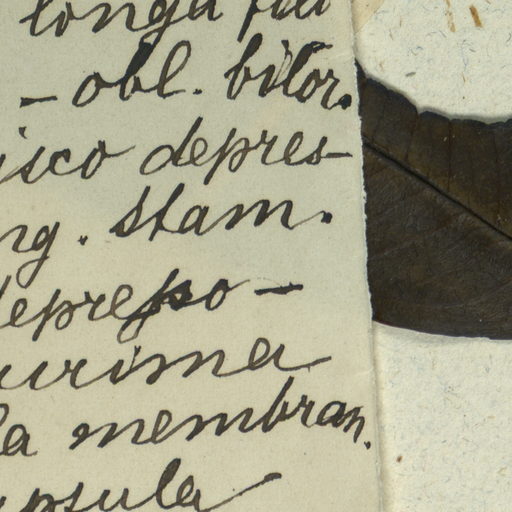 longa
- obl. bilor.
isco depres-
ng. stam.
depresso -
urima
la membran.
psula